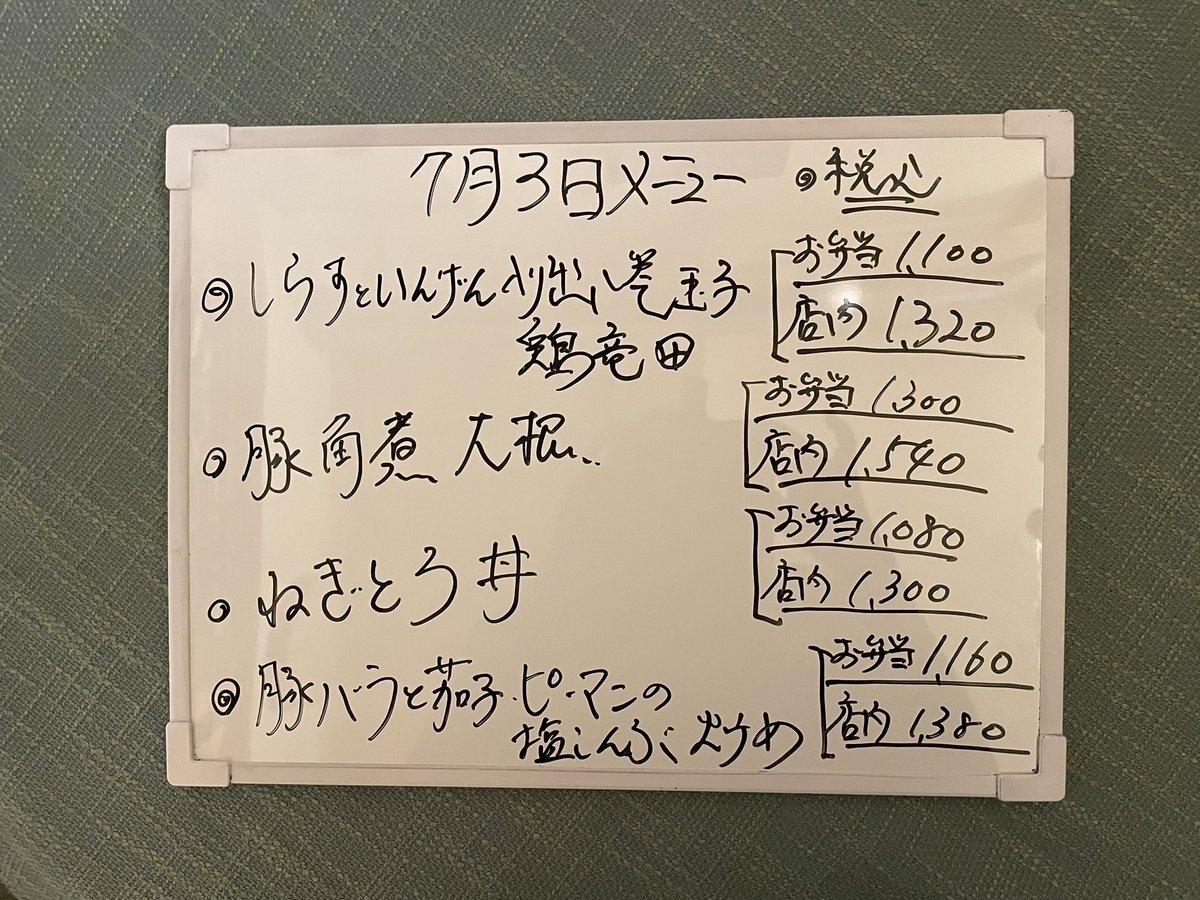 7月3日メニュー
◎税込
◎しらすといんげん入り出し巻玉子
鶏竜田
お弁当 1,100
店内 1,320
◎豚角煮 大根
お弁当 1,300
店内 1,540
○ねぎとろ丼
お弁当 1,080
店内 1,300
◎豚バラと茄子・ピーマンの
塩こんぶ炒め
お弁当 1,160
店内 1,380